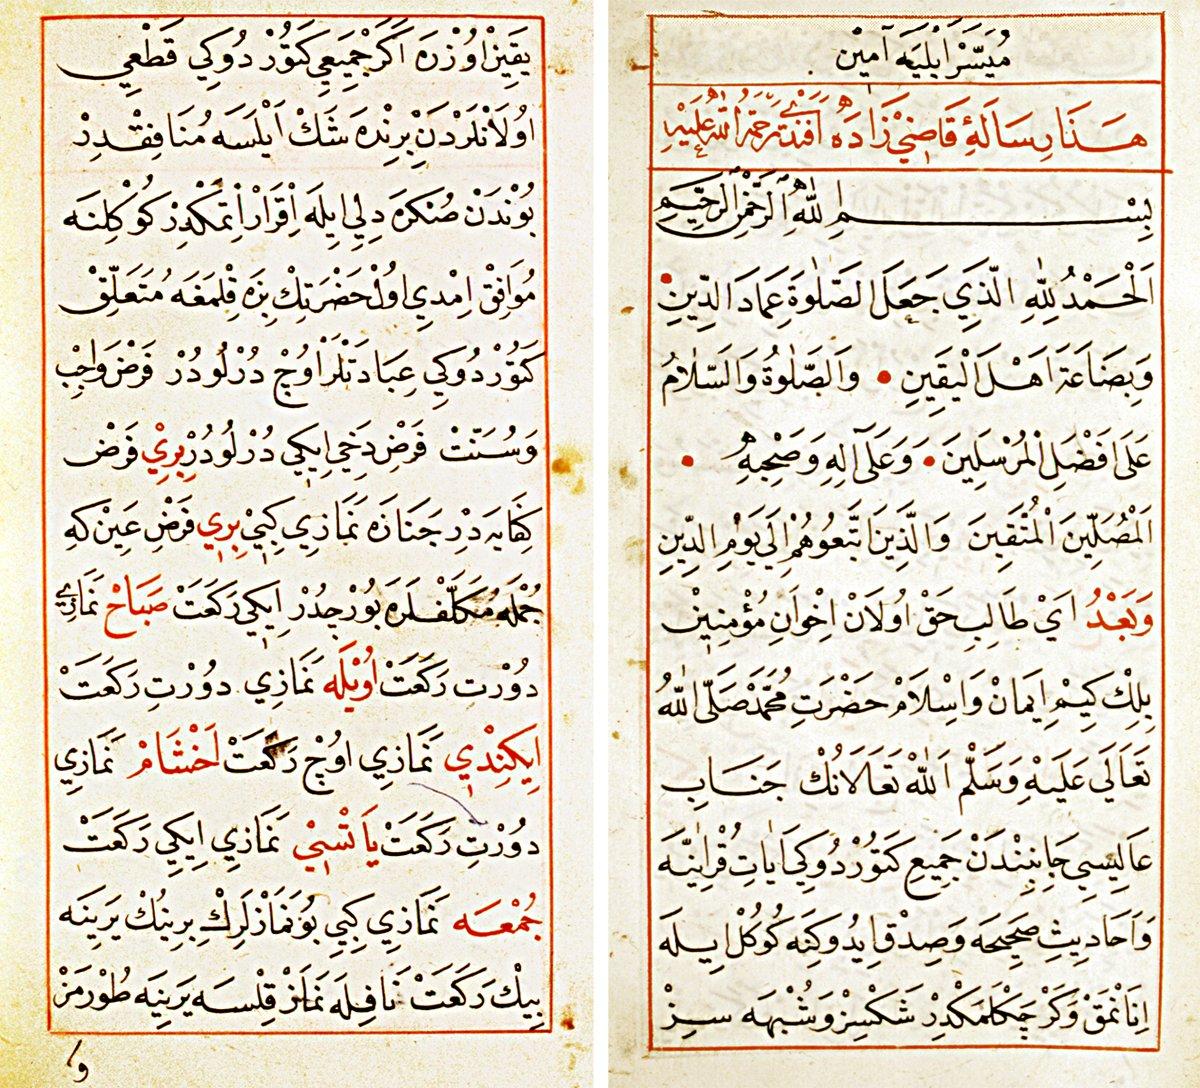 مُيَسَّرْ اَيْلِيَه آمِينْ
هَذَا رِسَالَةُ قَاضِيْ زَادَه اَفَنْدِيْ رَحْمَةُ اللّٰهِ عَلَيْهِ
بِسْمِ اللّٰهِ الرَّحْمٰنِ الرَّحِيمِ
اَلْحَمْدُ لِلّٰهِ الَّذِي جَعَلَ الصَّلٰوةَ عِمَادَ الدِّينِ
وَبِضَاعَةَ اَهْلِ الْيَقِينِ • وَالصَّلٰوةُ وَالسَّلَامُ
عَلَى اَفْضَلِ الْمُرْسَلِينَ • وَعَلَى آلِهِ وَصَحْبِهِ •
اَلْمُصَلِّينَ الْمُتَّقِينَ وَالَّذِينَ اتَّبَعُوهُمْ اِلَى يَوْمِ الدِّينِ
وَبَعْدُ اَيْ طَالِبِ حَقْ اُولَانْ اِخْوَانِ مُؤْمِنِينْ
بِلِكْ كِيمْ اِيمَانْ وَاِسْلَامْ حَضْرَتِ مُحَمَّدْ صَلَّى اللّٰهُ
تَعَالَى عَلَيْهِ وَسَلَّمْ اَللّٰهْ تَعَالَانُكْ جَنَابِ
عَالِيسِي جَانِبِنْدَنْ جَمِيعِ كَتُوُرْدُوكِي اٰيَاتِ قُرْاٰنِيَّه
وَاَحَادِيثِ صَحِيحَه وَصِدْقِ اِيدُوكِنَه كُوكُلْ اِيلَه
اِنَانْمَقْ وَكَرْچَكْلَمَكْدِرْ شَكْسِزْ وَشُبْهَه سِزْ
يَقِينْ اُوزْرَه اَكَرْ جَمِيعِ كَتُوُرْدُوكِي قَطْعِي
اُولَانْلَرْدَنْ بِرِنْدَه شَكْ اَيْلَسَه مُنَافِقْدِرْ
بُونْدَنْ صُنْكَرَه دِلِي اِيلَه اِقْرَارْ اِتْمَكْدِرْ كُوكْلِنَه
مُوَافِقْ اِمْدِي اُولْ حَضْرَتِكْ بِزَه قِلْمَغَه مُتَعَلِّقْ
كَتُوُرْدُوكِي عِبَادَتْلَرْ اُوچْ دُرْلُودُرْ فَرْضْ وَاجِبْ
وَسُنَّتْ فَرْضْ دَخِي اِيكِي دُرْلُودُرْ بِرِيْ فَرْضِ
كِفَايَه دِرْ جَنَازَه نَمَازِي كِبِيْ بِرِيْ فَرْضِ عَيْنْ كِه
جُمْلَه مُكَلَّفْلَرَه بُورْجدُرْ اِيكِي رَكَعَتْ صَبَاحْ نَمَازِي
دُورْت رَكَعَتْ اُويْلَه نَمَازِي دُورْت رَكَعَتْ
اِيكِنْدِي نَمَازِي اُوچْ رَكَعَتْ اَخْشَامْ نَمَازِي
دُورْت رَكَعَتْ يَاتْسِيْ نَمَازِي اِيكِي رَكَعَتْ
جُمْعَه نَمَازِي كِبِي بُو نَمَازْلَرِكْ بِرِينُكْ يَرِينَه
بِيكْ رَكَعَتْ نَافِلَه نَمَازْ قِلْسَه يَرِينَه طُورْمَزْ
و